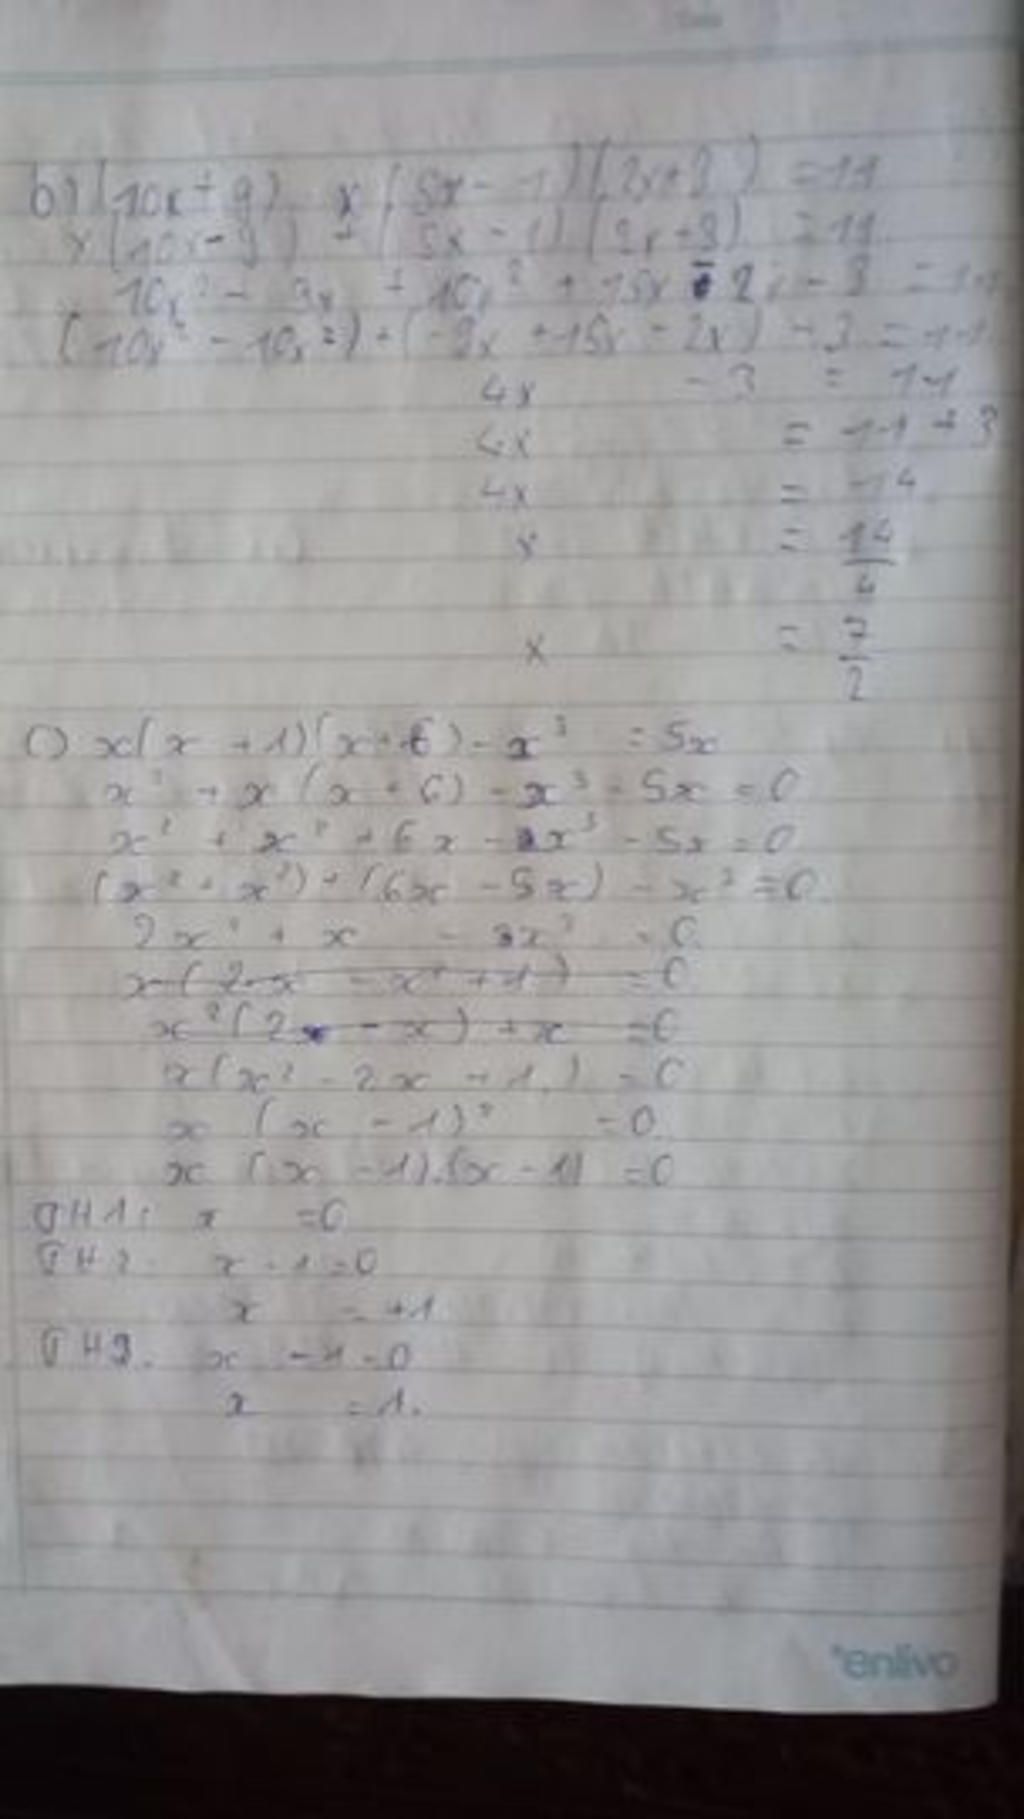 b) (10x + 9) x (5x - 1)(2x+3) = 11
x(10x-9) - (5x - 1)(2x+3) = 11
10x² - 9x - 10x² + 15x - 2x - 3 = 11
(10x² - 10x²) + (-9x + 15x - 2x) - 3 = 11
4x - 3 = 11
4x = 11 + 3
4x = 14
x = 14/4
x = 7/2
c) x(x + 1)(x+6) - x³ = 5x
x² + x (x + 6) - x³ - 5x = 0
x² + x² + 6x - x³ - 5x = 0
(x² + x²) + (6x - 5x) - x³ = 0
2x² + x - x³ = 0
x (2x - x² + 1) = 0
x² (2 - x) + x = 0
x(x² - 2x + 1) = 0
x (x - 1)² = 0
x (x - 1).(x - 1) = 0
TH1: x = 0
TH2: x - 1 = 0
x = +1
TH3: x - 1 = 0
x = 1.
enlivo